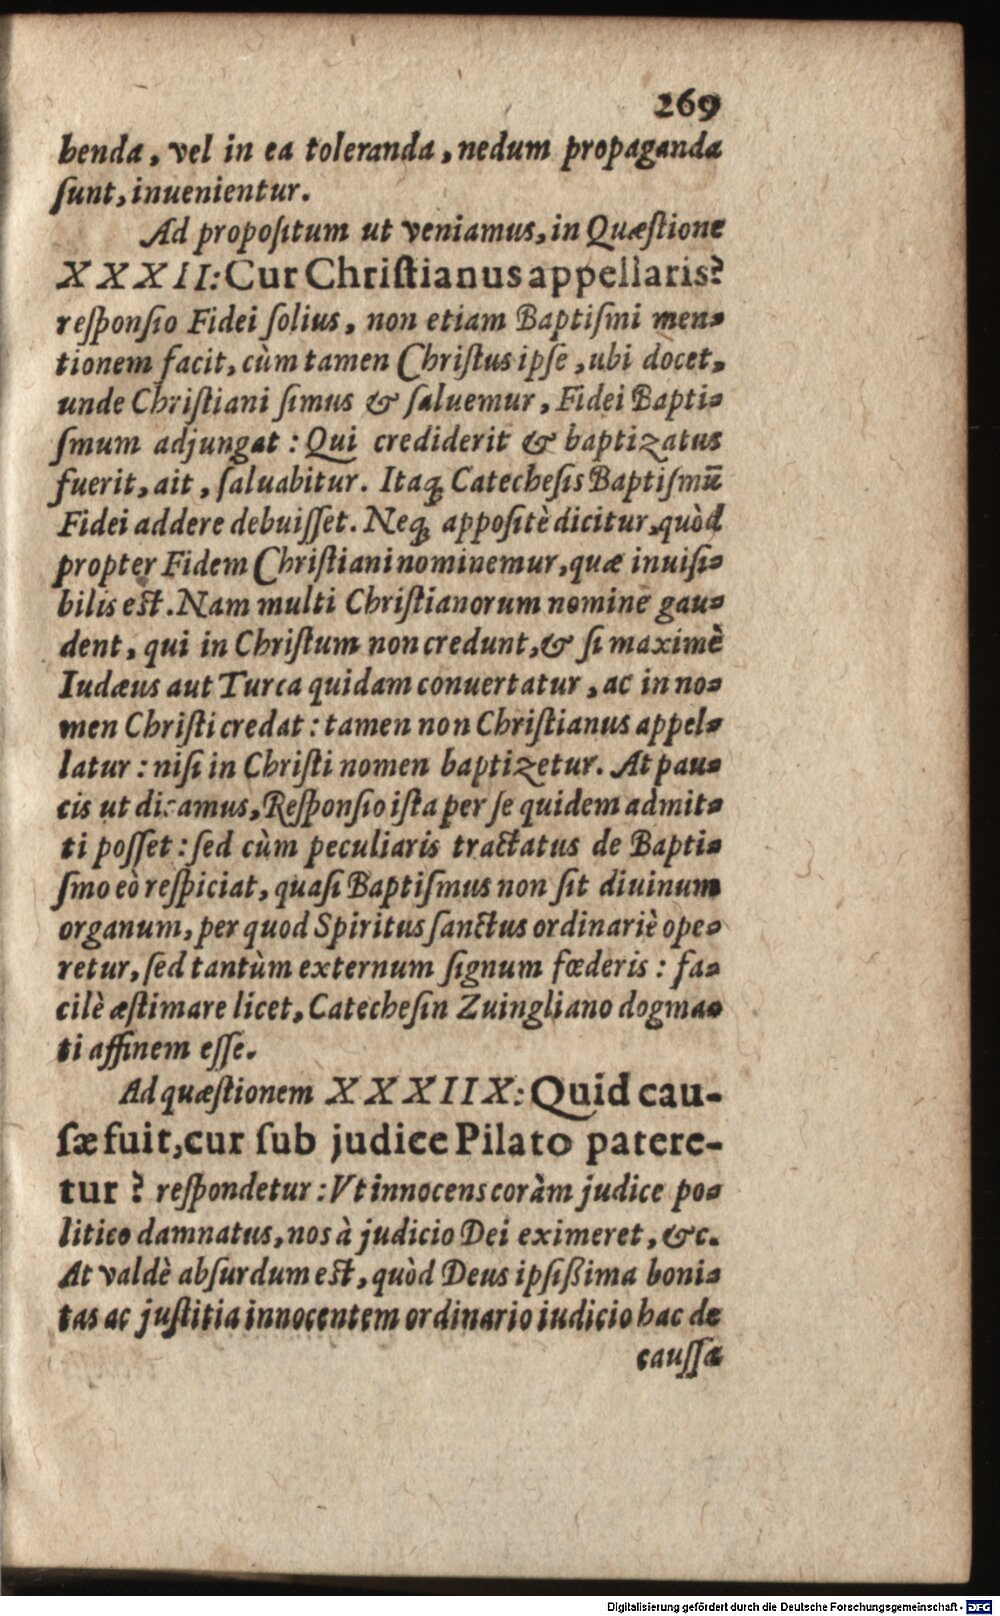 269
benda, vel in ea toleranda, nedum propaganda
ſunt, inuenientur.
Ad propoſitum ut veniamus, in Quæſtione
XXXII: Cur Chriſtianus appellaris?
reſponſio Fidei ſolius, non etiam Baptiſmi men-
tionem facit, cùm tamen Chriſtus ipſe, ubi docet,
unde Chriſtiani ſimus & ſaluemur, Fidei Bapti-
ſmum adjungat: Qui crediderit & baptizatus
fuerit, ait, ſaluabitur. Itaq; Catecheſis Baptiſmū
Fidei addere debuiſſet. Neq; appoſitè dicitur, quòd
propter Fidem Chriſtiani nominemur, quæ inuiſi-
bilis eſt. Nam multi Chriſtianorum nomine gau-
dent, qui in Chriſtum non credunt, & ſi maximè
Iudæus aut Turca quidam conuertatur, ac in no-
men Chriſti credat: tamen non Chriſtianus appel-
latur: niſi in Chriſti nomen baptizetur. At pau-
cis ut dicamus, Reſponſio iſta per ſe quidem admit-
ti poſſet: ſed cùm peculiaris tractatus de Bapti-
ſmo eò reſpiciat, quaſi Baptiſmus non ſit diuinum
organum, per quod Spiritus ſanctus ordinariè ope-
retur, ſed tantùm externum ſignum fœderis: fa-
cilè æſtimare licet, Catecheſin Zuingliano dogma-
ti affinem eſſe.
Ad quæſtionem XXXIIX: Quid cau-
ſæ fuit, cur ſub judice Pilato patere-
tur? reſpondetur: Vt innocens coràm judice po-
litico damnatus, nos à judicio Dei eximeret, &c.
At valdè abſurdum eſt, quòd Deus ipſiſſima boni-
tas ac juſtitia innocentem ordinario iudicio hac de
cauſſa
Digitalisierung gefördert durch die Deutsche Forschungsgemeinschaft - DFG